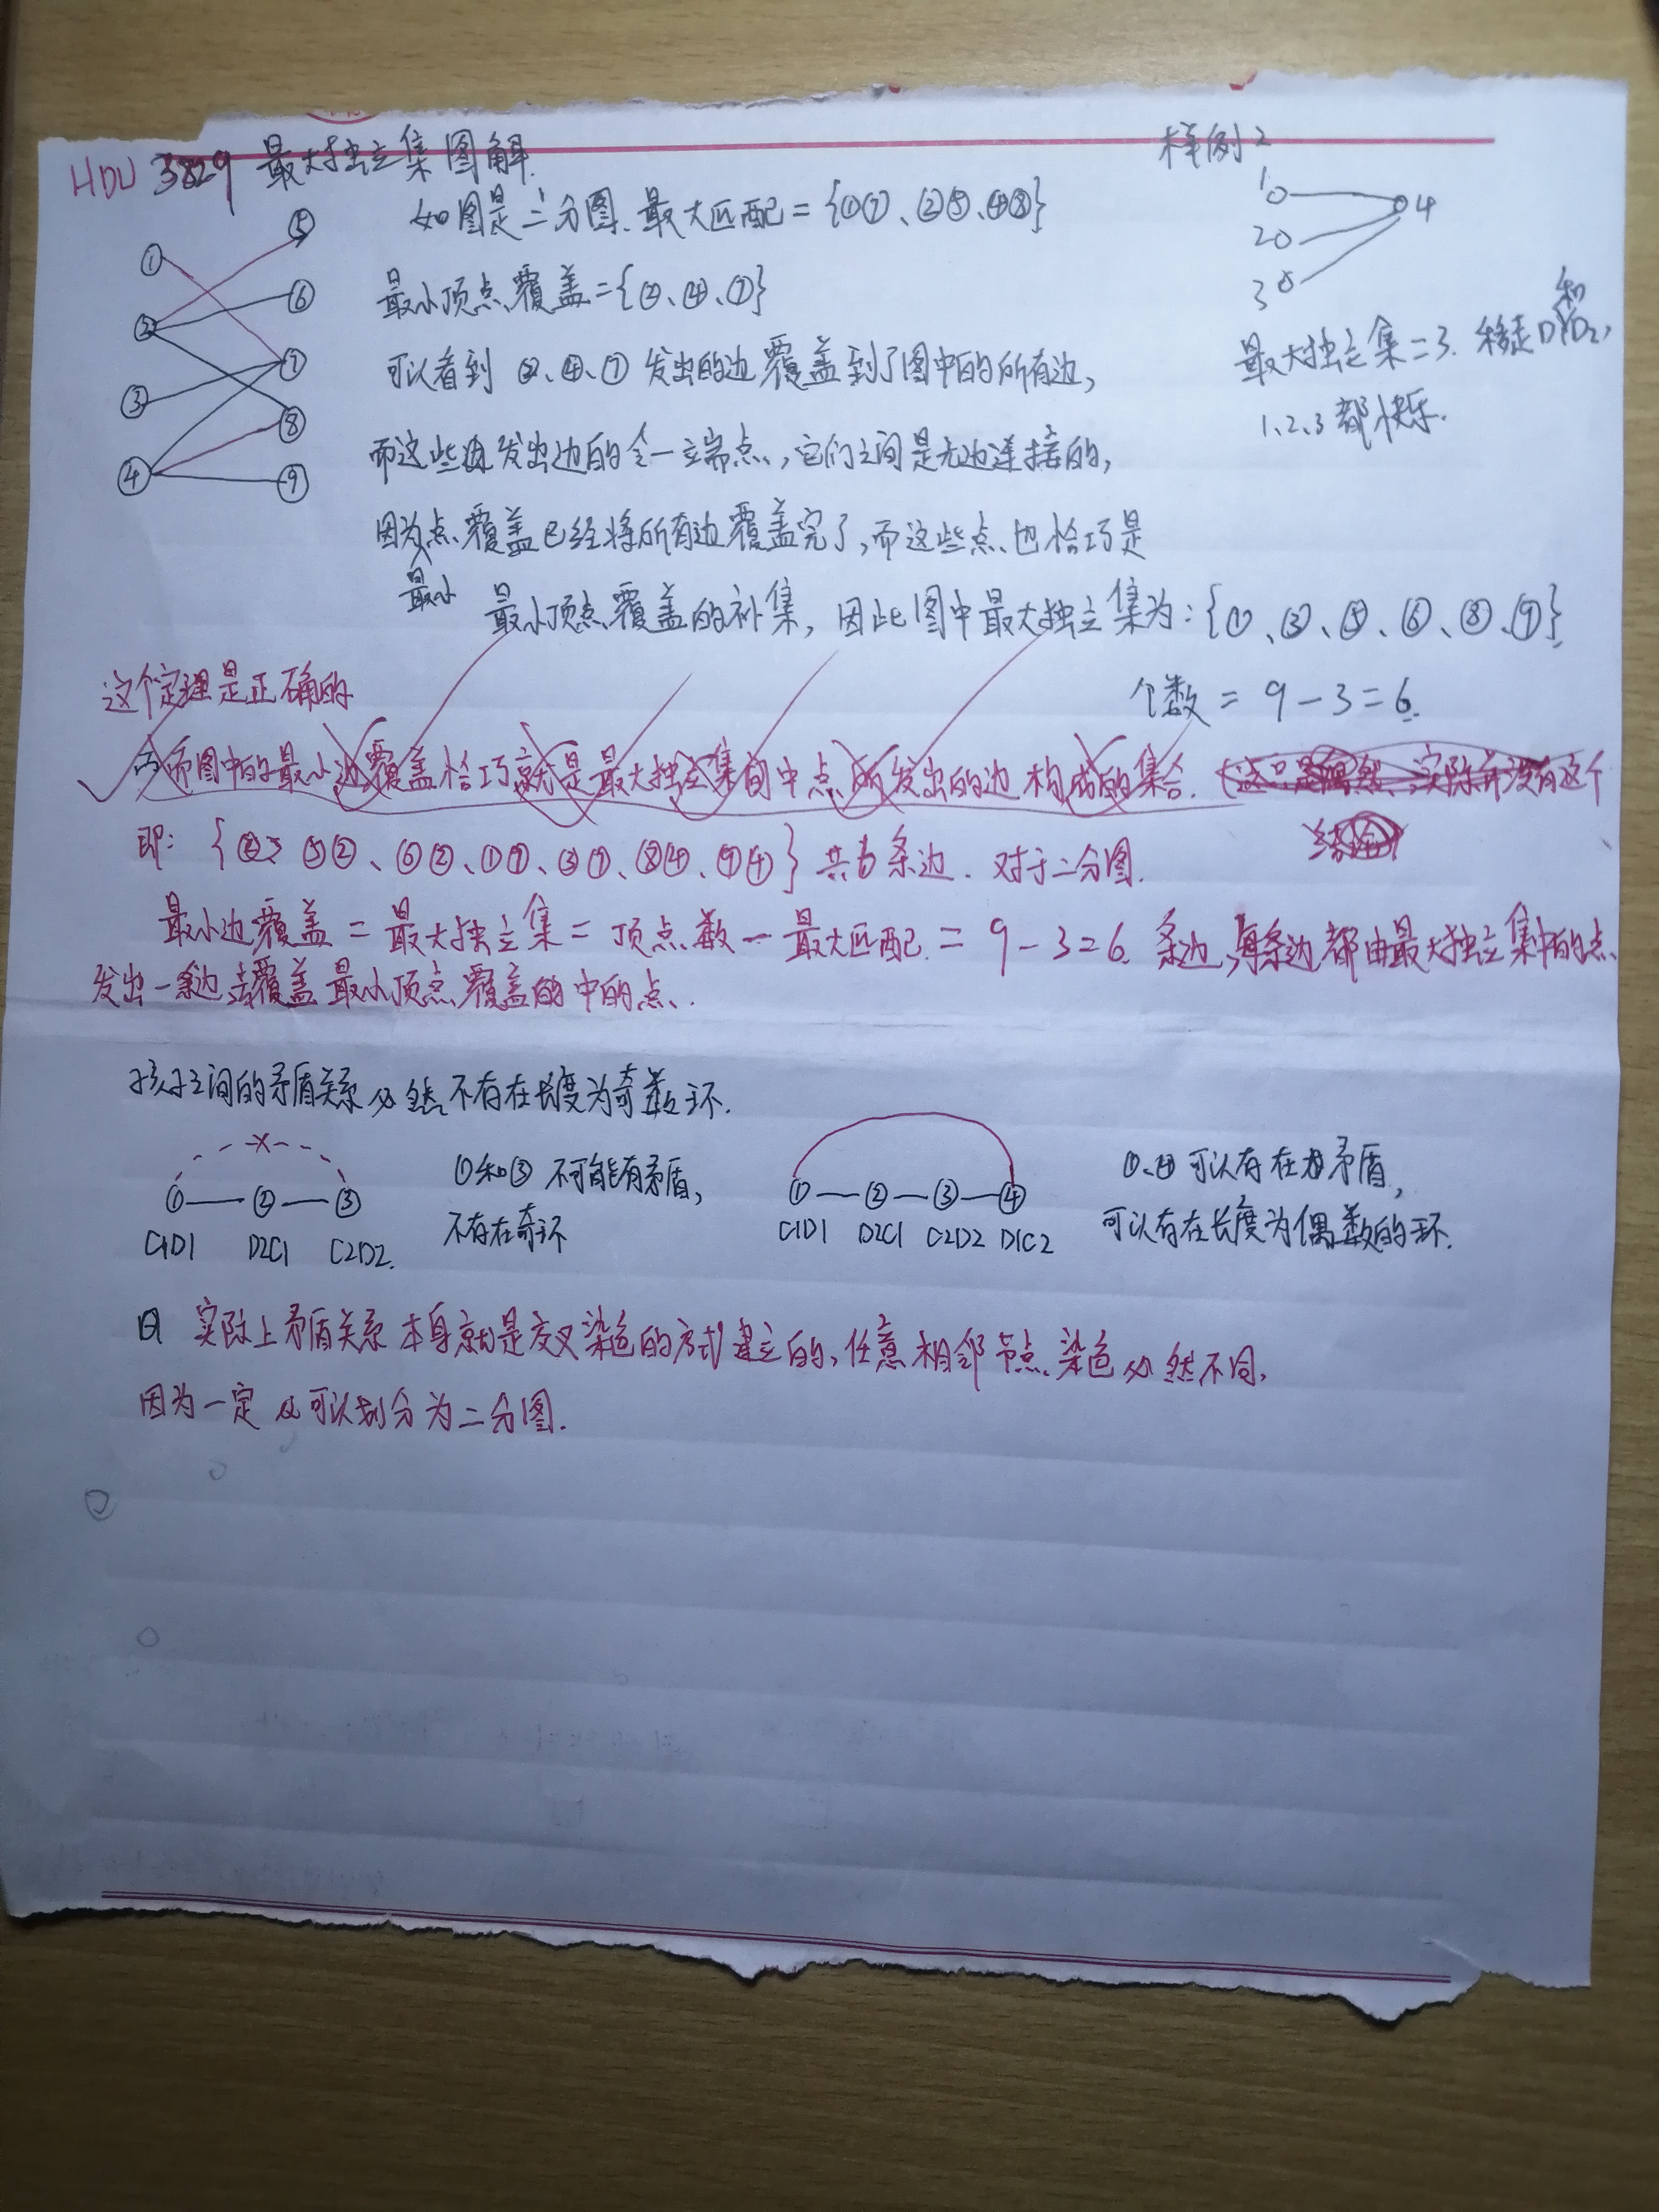 HDU 3829 最大独立集图解.
样例2
如图是二分图.最大匹配={①⑦、②⑤、④⑧}
① ② ③ ④ ⑤ ⑥ ⑦ ⑧ ⑨
1 2 3 4
最小顶点覆盖={②、④、⑦}
最大独立集=3. 移走D1和D2,
1、2、3都快乐.
可以看到 ②、④、⑦ 发出的边覆盖到了图中的所有边,
而这些边发出边的令一立端点,它们之间是无边连接的,
因为最小点覆盖已经将所有边覆盖完了,而这些点也恰巧是
最小顶点覆盖的补集,因此图中最大独立集为:{①、③、⑤、⑥、⑧、⑨}
个数=9-3=6.
这个定理是正确的
而图中的最小边覆盖恰巧就是最大独立集的中点所发出的边构成的集合.
即:{⑤②、⑥②、①⑦、③⑦、⑧④、⑨④}共6条边.对于二分图.
最小边覆盖=最大独立集=顶点数-最大匹配=9-3=6.条边,每条边都由最大独立集中的点
发出一条边去覆盖最小顶点覆盖的中的点.
孩子之间的矛盾关系必然不存在长度为奇数环.
①—②—③
C1D1 D2C1 C2D2.
①和③不可能有矛盾,
不存在奇环
①—②—③—④
C1D1 D2C1 C2D2 D1C2
①、④可以存在矛盾,
可以存在长度为偶数的环.
实际上矛盾关系本身就是交叉染色的方式建立的,任意相邻节点染色必然不同,
因为一定可以划分为二分图.